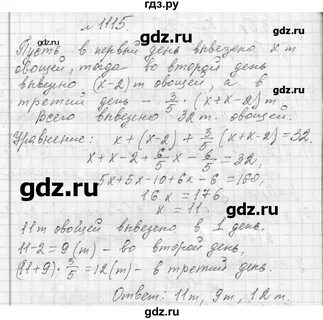 gdz.ru
№ 1115
Пусть в первый день вывезено x т
овощей, тогда во второй день
вывезено (x-2) т овощей, а в
третий день - 3/5 · (x+x-2) т
Всего вывезено 32 т. овощей.
Уравнение: x+(x-2)+3/5(x+x-2)=32.
x+x-2+6/5x-6/5=32,
5x+5x-10+6x-6=160,
16x=176,
x=11.
11 т овощей вывезено в 1 день.
11-2=9 (т) - во второй день,
(11+9)·3/5=12 (т) - в третий день.
Ответ: 11 т, 9 т, 12 т.
gdz.ru
gdz.ru
gdz.ru
gdz.ru
gdz.ru
gdz.ru